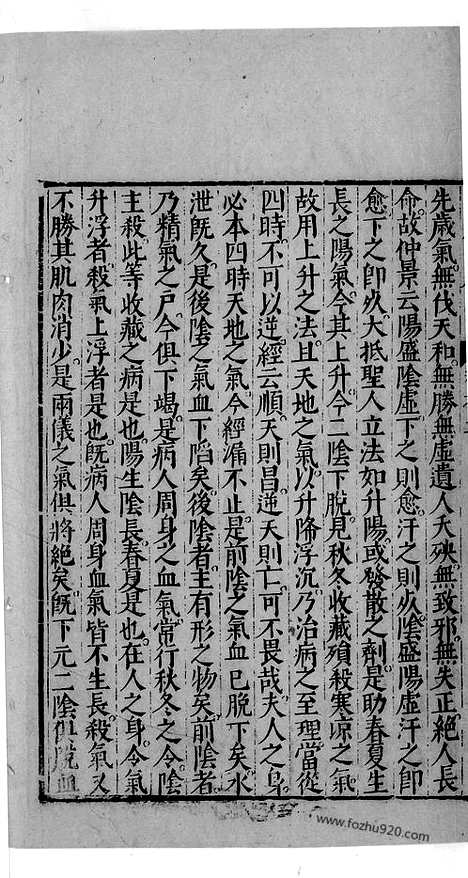 先歲氣無伐天和無勝無虛遺人夭殃無致邪無失正絕人長
命故仲景云陽盛陰虛下之則愈汗之則死陰盛陽虛汗之即
愈下之卽死大抵聖人立法如升陽或發散之劑是助春夏生
長之陽氣令其上升今二陰下脫見秋冬收藏殞殺寒凉之氣
故用上升之法且天地之氣以升降浮沉乃治病之至理當從
四時不可以逆經云順天則昌逆天則亡可不畏哉夫人之身
必本四時天地之氣今經漏不止是前陰之氣血已脫下矣水
泄旣久是後陰之氣血下陷矣後陰者主有形之物矣前陰者
乃精氣之戸今俱下竭是病人周身之血氣常行秋冬之令陰
主殺此等收藏之病是也陽生陰長春夏是也在人之身令氣
升浮者殺氣上浮者是也旣病人周身血氣皆不生長殺氣又
不勝其肌肉消少是兩儀之氣俱將絕矣旣下元二陰俱脫血
www.fozhu920.com